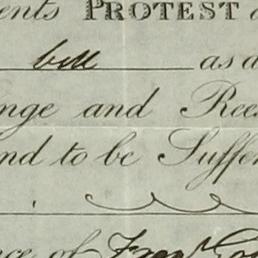 ents PROTEST a
bill as a
nge and Ree
nd to be Suffer
ce of